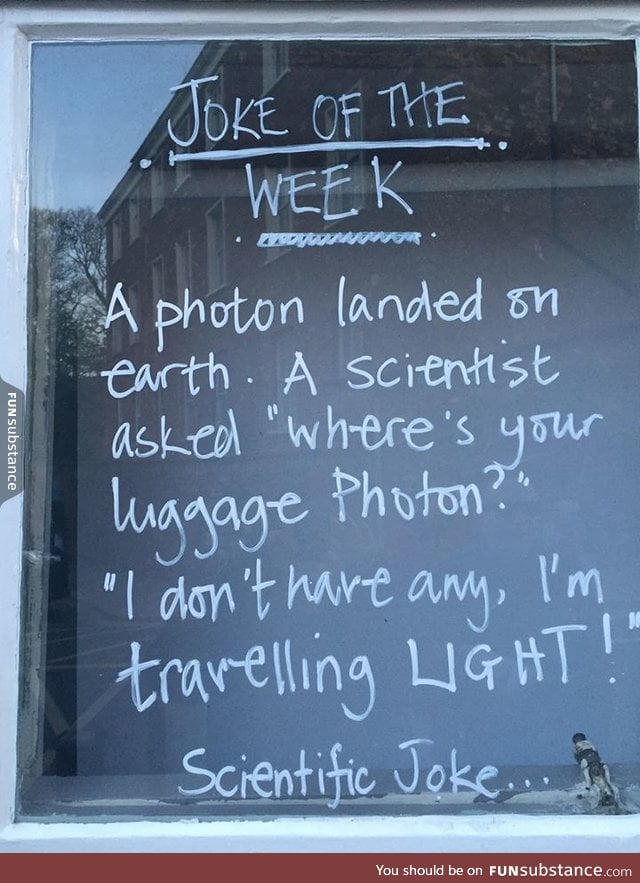 JOKE OF THE
WEEK
A photon landed on
earth. A scientist
asked "where's your
luggage Photon?"
"I don't have any, I'm
travelling LIGHT!"
Scientific Joke...
FUNsubstance
You should be on FUNsubstance.com